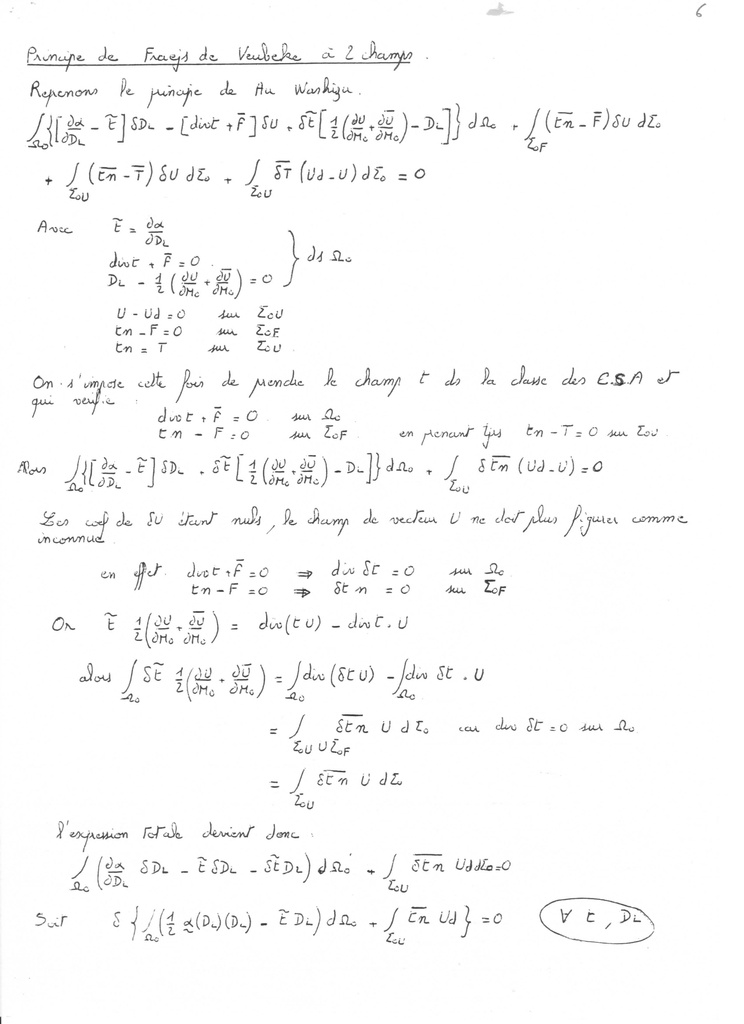 6
Principe de Fraejs de Veubeke à 2 champs.
Reprenons le principe de Hu Washizu.
∫_Ω₀ {[∂α/∂D_L - t̃] δD_L - [div t + F̄] δU + δt̃ [1/2 (∂U/∂M₀ + ∂Ū/∂M₀) - D_L]} dΩ₀ + ∫_Σ₀F (t̄n̄ - F̄) δU dΣ₀
+ ∫_Σ₀U (t̄n̄ - T̄) δU dΣ₀ + ∫_Σ₀U δT̄ (Ud - U) dΣ₀ = 0
Avec t̃ = ∂α/∂D_L
div t + F̄ = 0 } ds Ω₀
D_L - 1/2 (∂U/∂M₀ + ∂Ū/∂M₀) = 0
U - Ud = 0 sur Σ₀U
tn - F = 0 sur Σ₀F
tn = T sur Σ₀U
On s'impose cette fois de prendre le champ t ds la classe des C.S.A et
qui vérifie
div t + F̄ = 0 sur Ω₀
tn - F = 0 sur Σ₀F en prenant tjrs tn - T = 0 sur Σ₀U
Alors ∫_Ω₀ {[∂α/∂D_L - t̃] δD_L + δt̃ [1/2 (∂U/∂M₀ + ∂Ū/∂M₀) - D_L]} dΩ₀ + ∫_Σ₀U δt̄n̄ (Ud - U) = 0
Les coef de δU étant nuls, le champ de vecteur U ne doit plus figurer comme
inconnue.
en effet div t + F̄ = 0 ⇒ div δt = 0 sur Ω₀
tn - F = 0 ⇒ δt n = 0 sur Σ₀F
Or t̃ 1/2 (∂U/∂M₀ + ∂Ū/∂M₀) = div(tU) - div t . U
alors ∫_Ω₀ δt̃ 1/2 (∂U/∂M₀ + ∂Ū/∂M₀) = ∫_Ω₀ div (δtU) - ∫_Ω₀ div δt . U
= ∫_Σ₀U ∪ Σ₀F δt̄n̄ U dΣ₀ car div δt = 0 sur Ω₀
= ∫_Σ₀U δt̄n̄ U dΣ₀
l'expression totale devient donc :
∫_Ω₀ (∂α/∂D_L δD_L - t̃ δD_L - δt̃ D_L) dΩ₀ + ∫_Σ₀U δt̄n̄ Ud dΣ₀ = 0
Soit δ {∫_Ω₀ (1/2 α(D_L)(D_L) - t̃ D_L) dΩ₀ + ∫_Σ₀U t̄n̄ Ud} = 0 ∀ t, D_L